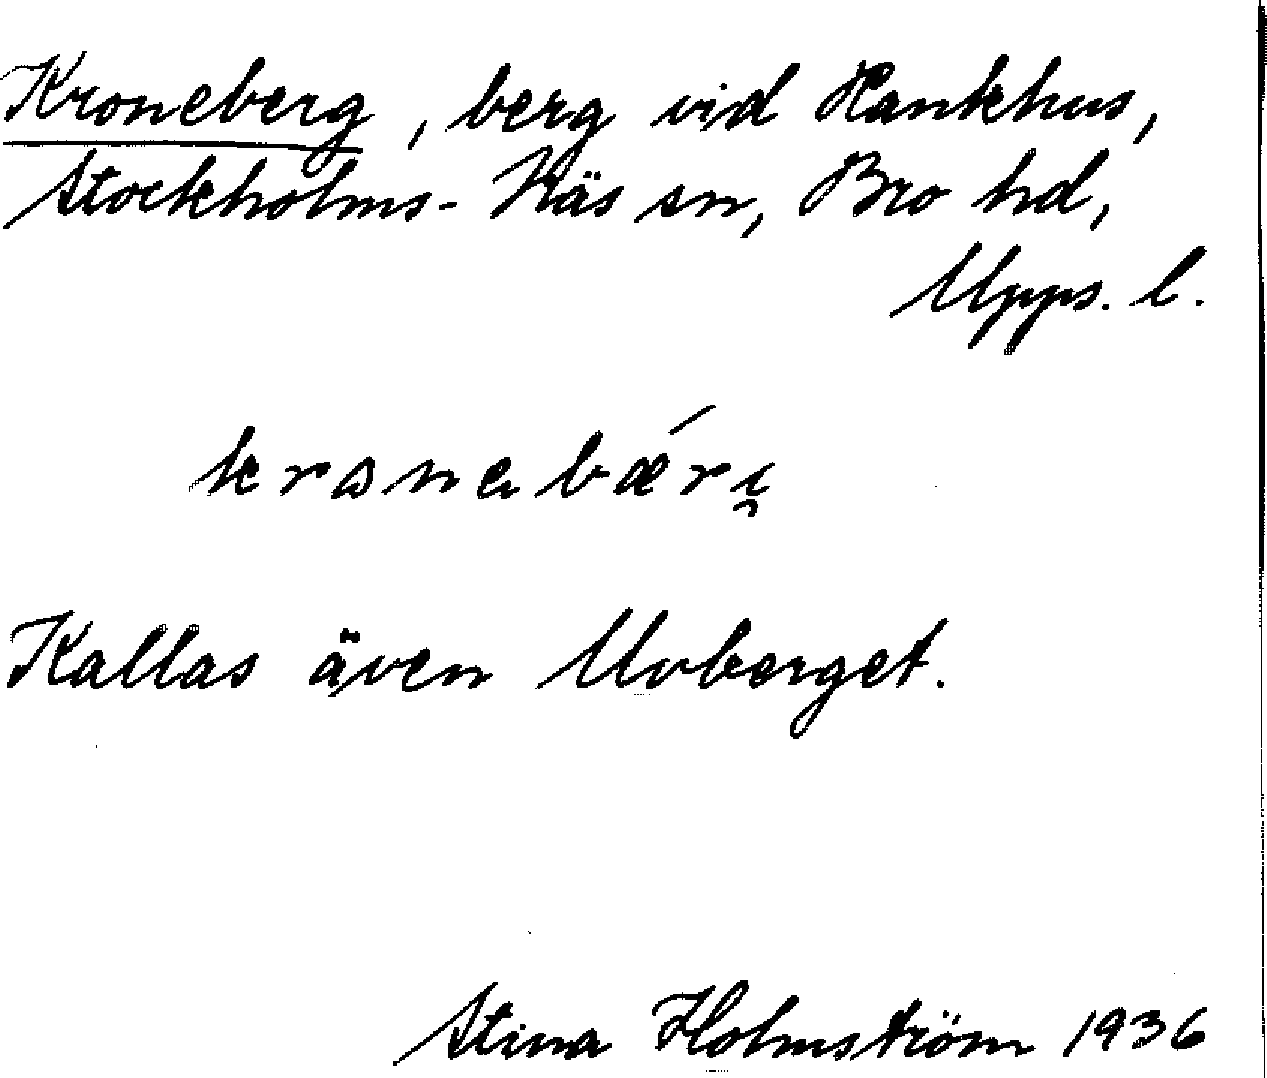 Kroneberg, berg vid Hankhus,
Stockholms-Näs sn, Bro hd,
Upps. l.
kronebǽri̯
Kallas även Uvberget.
Stina Holmström 1936